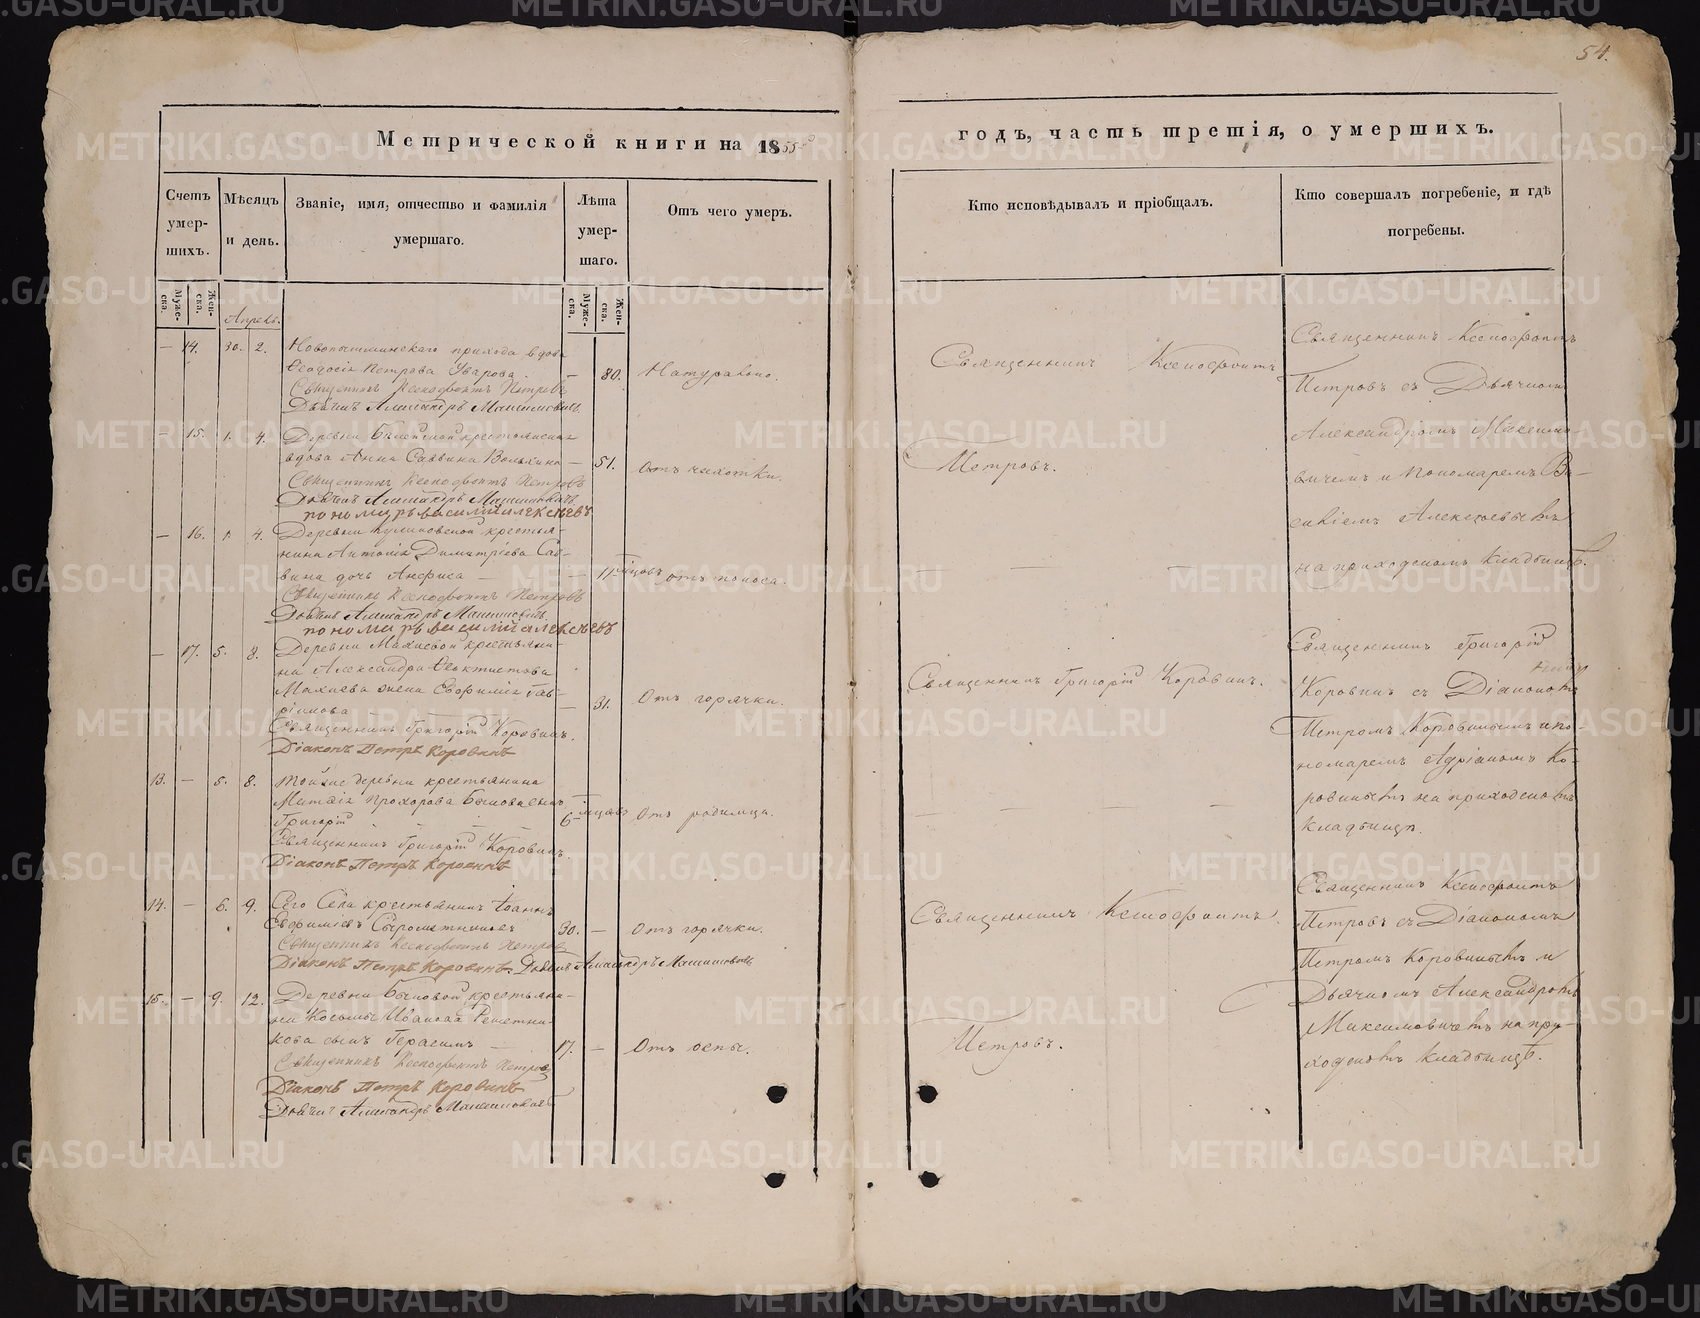 54.
Метрической книги на 1855
годъ, часть третія, о умершихъ.
Счетъ умер-шихъ.
Мѣсяцъ и день.
Званіе, имя, отчество и фамилія умершаго.
Лѣта умер-шаго.
Отъ чего умеръ.
Кто исповѣдывалъ и пріобщалъ.
Кто совершалъ погребеніе, и гдѣ погребены.
Муже-ска.
Жен-ска.
Муже-ска.
Жен-ска.
— 14. 30. 2. Новопышминскаго прихода вдова
Ѳеодосія Петрова Уварова. — 80. Натурально.
Священникъ Ксенофонтъ Петровъ
Дьячекъ Александръ Максимовичъ
— 15. 1. 4. Деревни крестьянская
вдова Анна Саввина — 51. Отъ чахотки.
Священникъ Ксенофонтъ Петровъ
Дьячекъ Александръ Максимовичъ
пономарь василій алексѣевъ
— 16. 1. 4. Деревни крестья-
нина Димитріева Сав-
вина дочь Анфиса — — 11 мѣсяцовъ отъ поноса.
Священникъ Ксенофонтъ Петровъ
Дьячекъ Александръ Максимовичъ
пономарь василій алексѣевъ
— 17. 5. 8. Деревни крестьяни-
на Александра Ѳеоктистова
жена Евфимія Гав-
рилова — 31. Отъ горячки.
Священникъ Григорій Коровинъ.
Діаконъ Петръ Коровинъ
13. — 5. 8. Той же деревни крестьянина
Прохорова сынъ
Григорій 6 мѣсяцовъ Отъ родимца.
Священникъ Григорій Коровинъ.
Діаконъ Петръ Коровинъ
14. — 6. 9. Сего Села крестьянинъ Іоаннъ
Евфиміевъ Сыромятниковъ 30. — Отъ горячки.
Священникъ Ксенофонтъ Петровъ
Діаконъ Петръ Коровинъ. Дьячекъ Александръ Максимовичъ
15. — 9. 12. Деревни Быковой крестьяни-
на Косьмы Иванова Решетни-
кова сынъ Герасимъ — 17. — Отъ оспы.
Священникъ Ксенофонтъ Петровъ
Діаконъ Петръ Коровинъ
Дьячекъ Александръ Максимовичъ
Священникъ Ксенофонтъ
Петровъ.
Священникъ Григорій Коровинъ.
Священникъ Ксенофонтъ
Петровъ.
Священникъ Ксенофонтъ
Петровъ съ Дьячкомъ
Александромъ Максимо-
вичемъ и Пономаремъ Ва-
силіемъ Алексѣевымъ
на приходскомъ кладбищѣ.
Священникъ Григорій
Коровинъ съ Діакономъ
Петромъ Коровинымъ и по-
номаремъ Адріаномъ Ко-
ровинымъ на приходскомъ
кладбищѣ.
Священникъ Ксенофонтъ
Петровъ съ Діакономъ
Петромъ Коровинымъ и
Дьячкомъ Александромъ
Максимовичемъ на при-
ходскомъ кладбищѣ.
METRIKI.GASO-URAL.RU